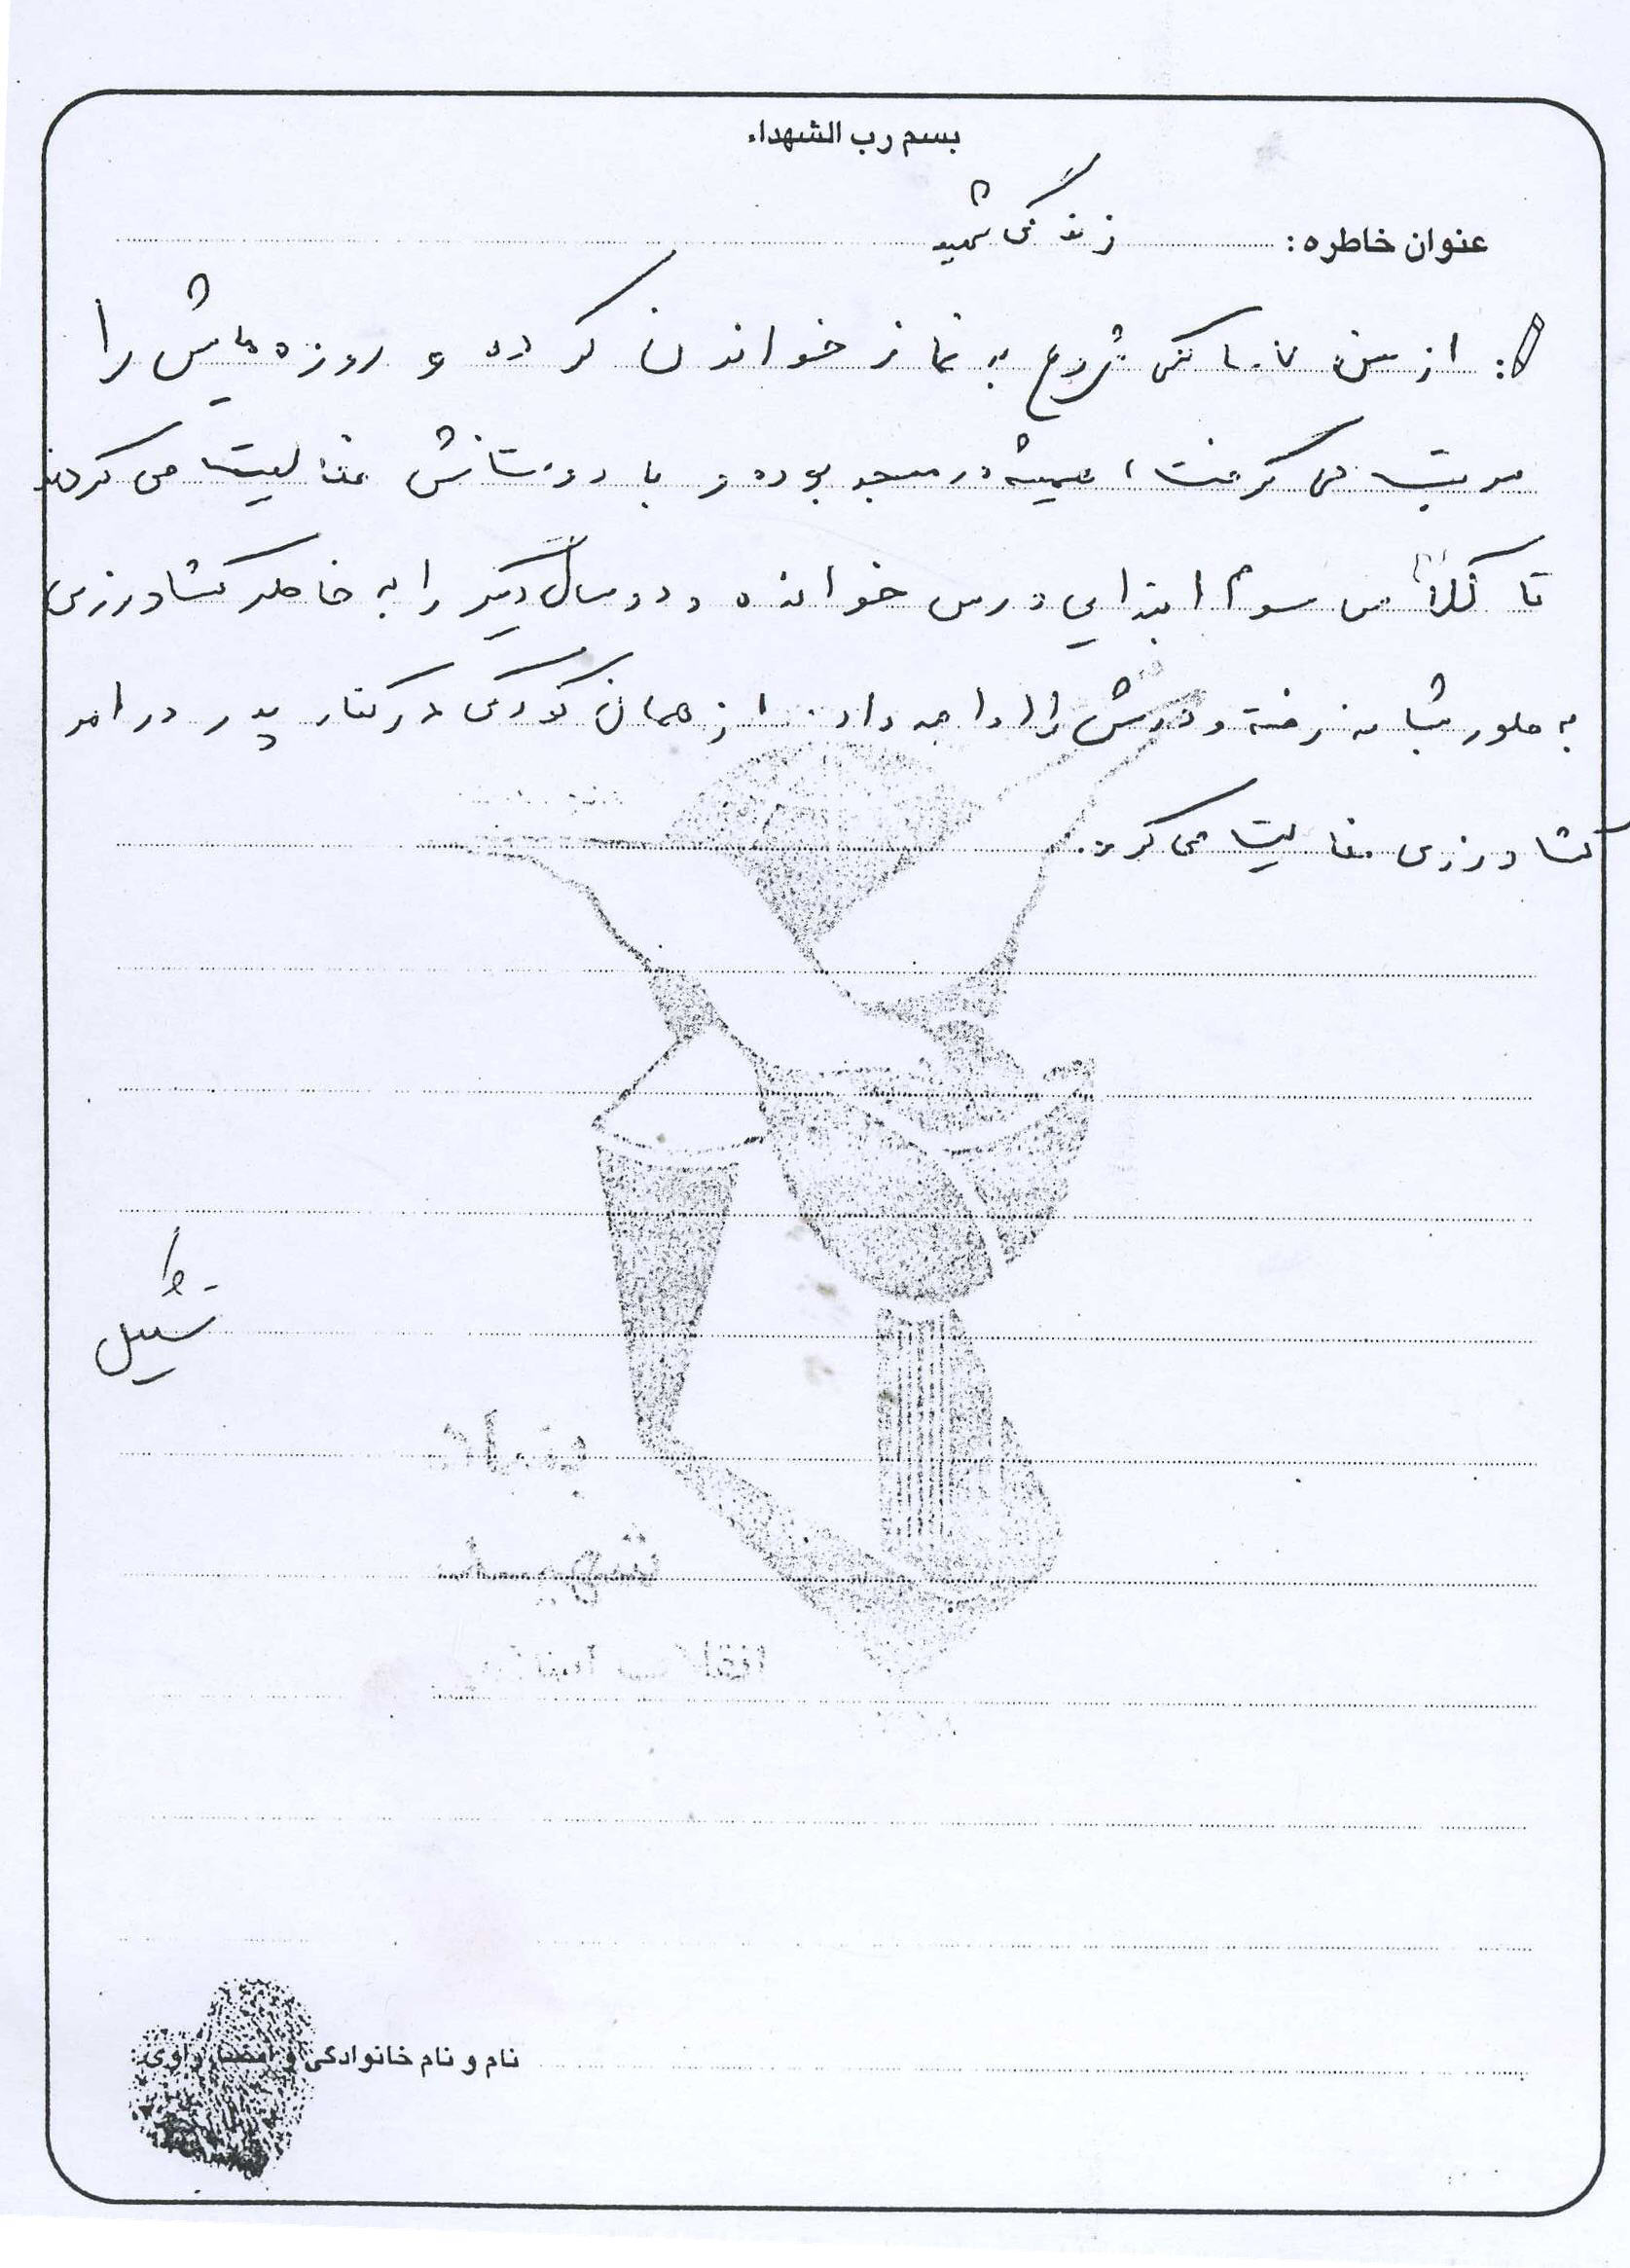 بسم رب الشهداء
عنوان خاطره: زندگی شهید
از سن شروع به نماز خواندن کرده و روزه هایش را
مرتب می گرفت، همیشه در مسجد بوده و با دوستانش فعالیت می کردند
تا کلاس سوم ابتدایی درس خوانده و دو سال دیگر را به خاطر کشاورزی
به طور شبانه رفته و درسش را ادامه داد. از همان کودکی در کنار پدر در امر
کشاورزی فعالیت می کرد.
بنیاد
شهید
انقلاب اسلامی
نام و نام خانوادگی و امضاء راوی: